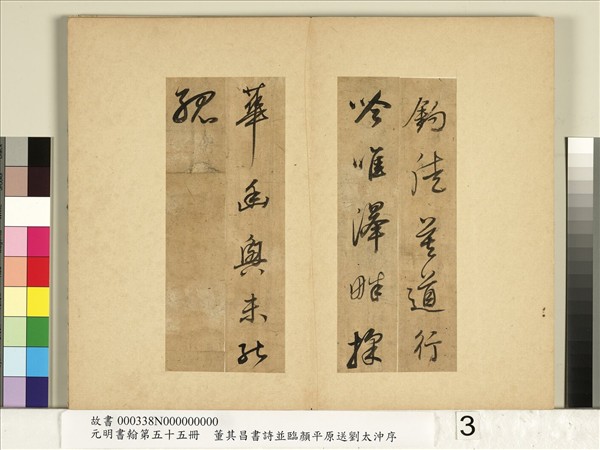 鈞徒莫道行
吟唯澤畔探
華幽興未能
騷
故書 000338N000000000
元明書翰第五十五冊 董其昌書詩並臨顏平原送劉太沖序
3